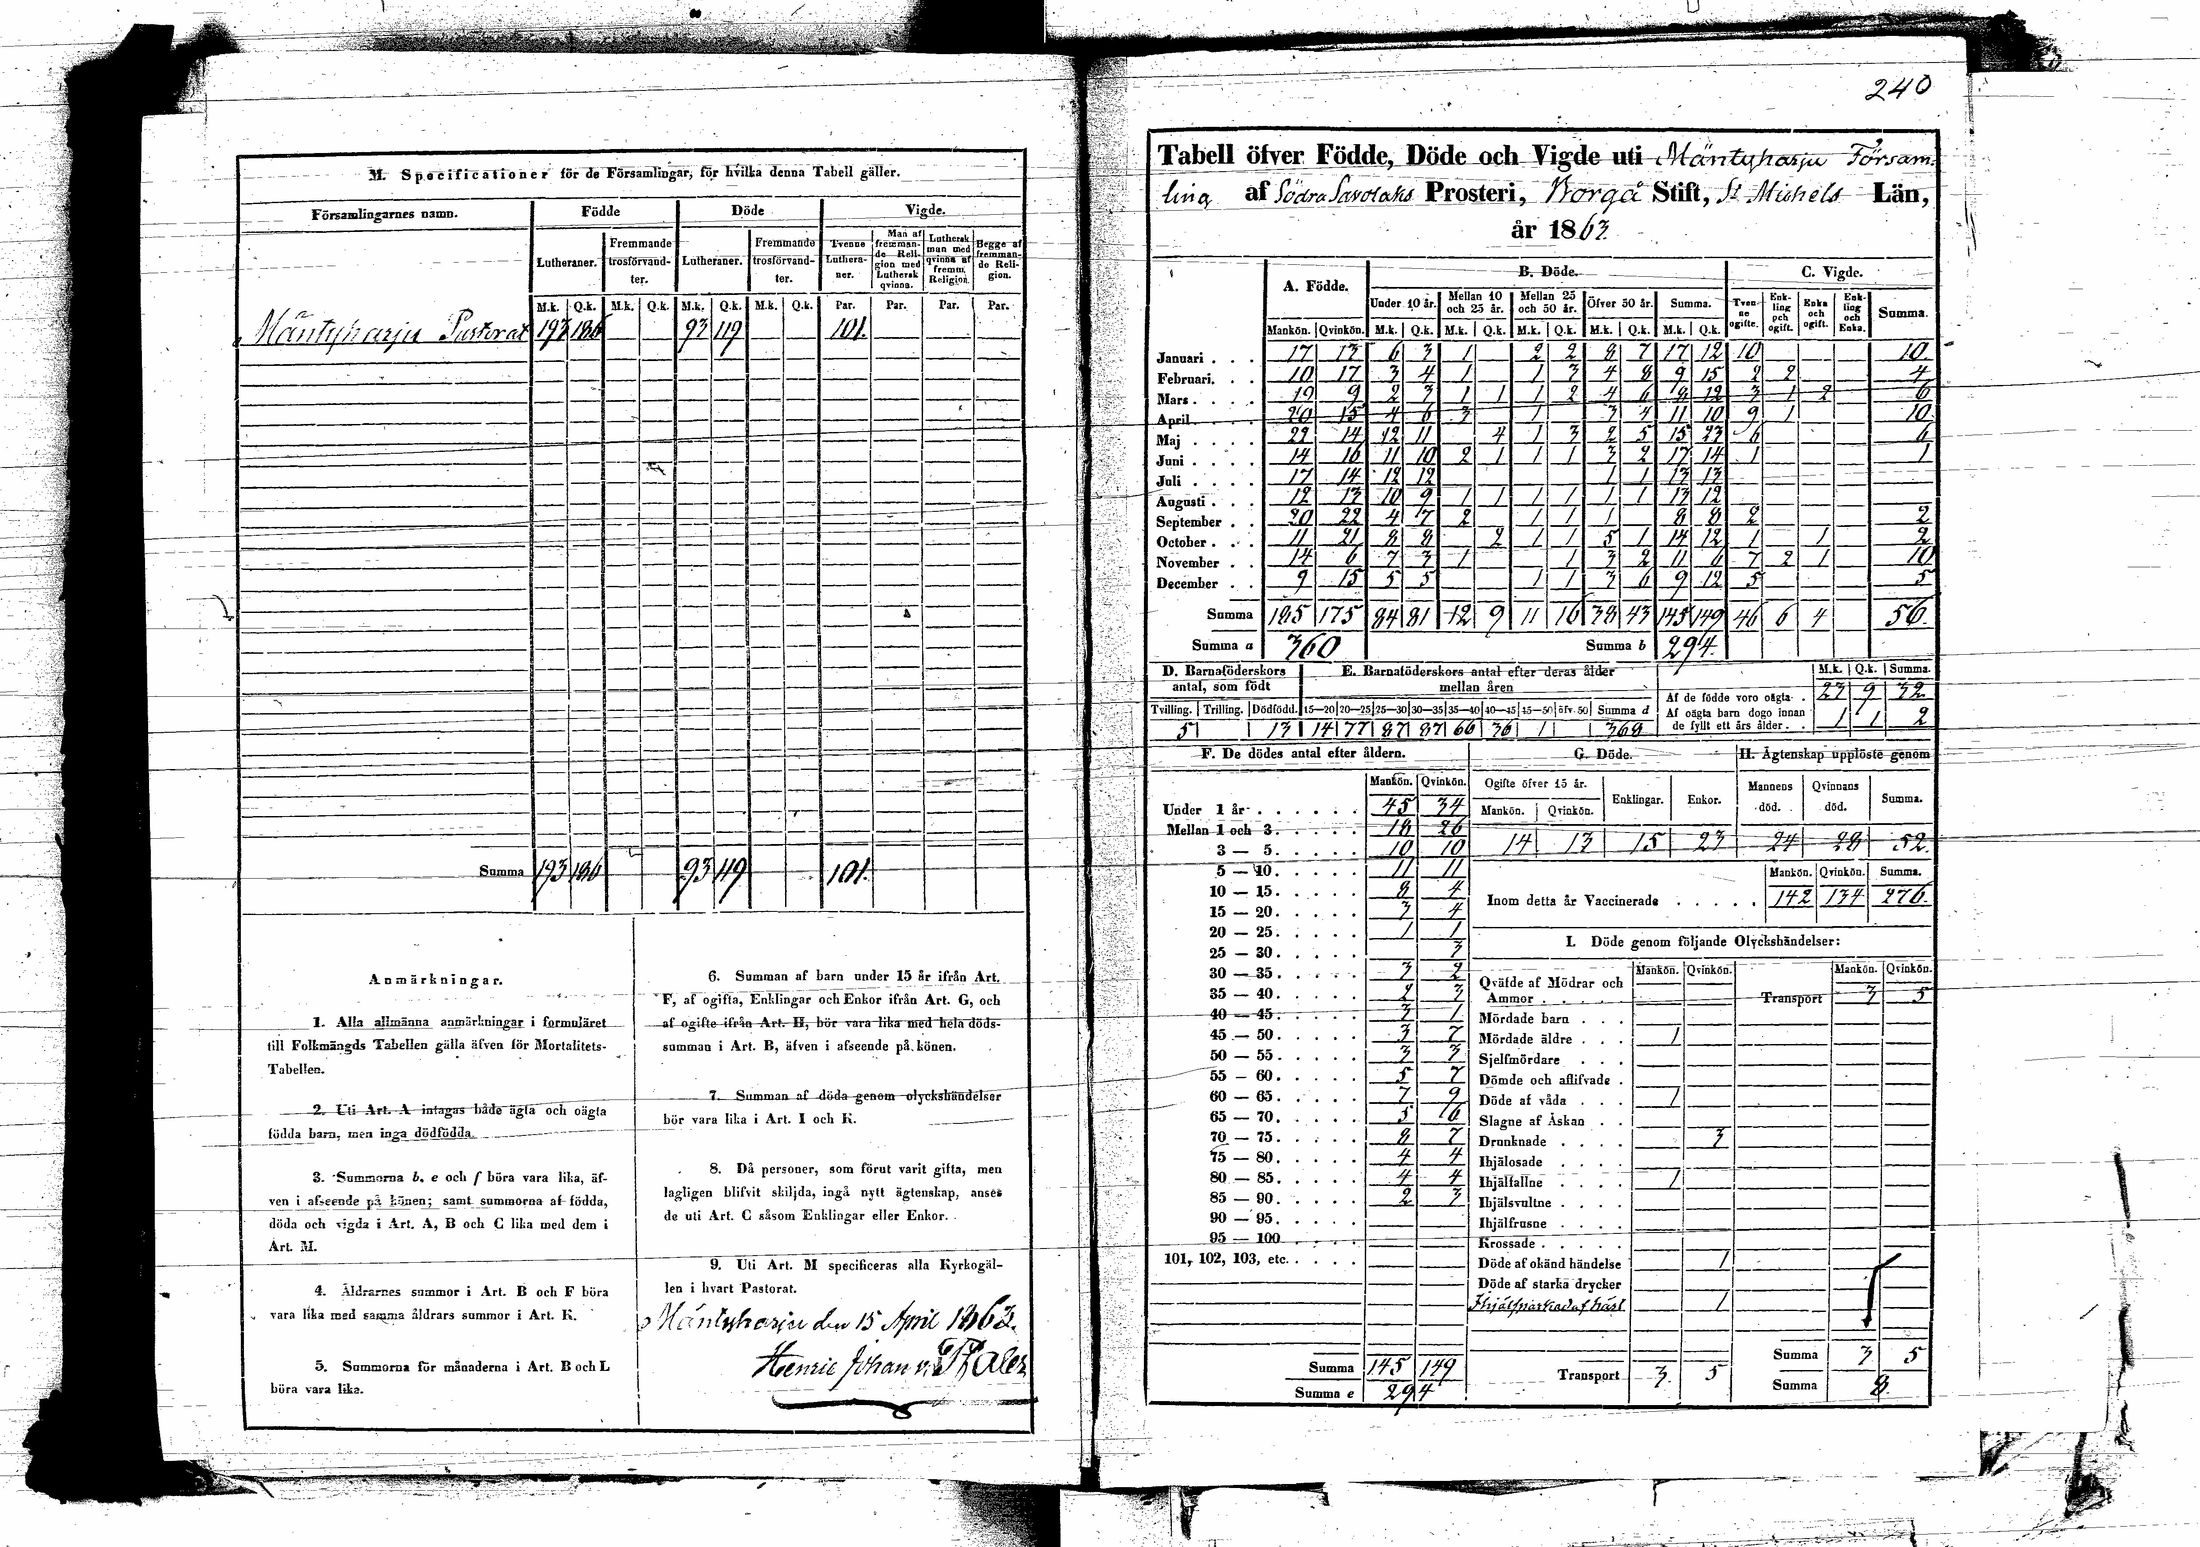 M. Specificationer för de Församlingar, för hvilka denna Tabell gäller.
Församlingarnes namn. Födde Döde Vigde.
Lutheraner. Fremmande trosförvandter. Lutheraner. Fremmande trosförvandter. Tvenne Lutheraner. Man af fremmande Religion med Luthersk qvinna. Luthersk man med qvinna af fremm. Religion. Begge af fremmande Religion.
M.k. Q.k. M.k. Q.k. M.k. Q.k. M.k. Q.k. Par. Par. Par. Par.
Mäntyharju Pastorat 193 186 93 119 101.
Summa 193 186 93 119 101.
Anmärkningar.
1. Alla allmänna anmärkningar i formuläret
till Folkmängds Tabellen gälla äfven för Mortalitets-
Tabellen.
2. Uti Art. A intagas både ägta och oägta
födda barn, men inga dödfödda.
3. Summorna b, e och f böra vara lika, äf-
ven i afseende på könen; samt summorna af födda,
döda och vigda i Art. A, B och C lika med dem i
Art. M.
4. Åldrarnes summor i Art. B och F böra
vara lika med samma åldrars summor i Art. K.
5. Summorna för månaderna i Art. B och L
böra vara lika.
6. Summan af barn under 15 år ifrån Art.
F, af ogifta, Enklingar och Enkor ifrån Art. G, och
af ogifte ifrån Art. H, bör vara lika med hela döds-
summan i Art. B, äfven i afseende på könen.
7. Summan af döda genom olyckshändelser
bör vara lika i Art. I och K.
8. Då personer, som förut varit gifta, men
lagligen blifvit skiljda, ingå nytt ägtenskap, anses
de uti Art. C såsom Enklingar eller Enkor.
9. Uti Art. M specificeras alla Kyrkogäl-
len i hvart Pastorat.
Mäntyharju den 15 April 1863.
Henric Johan
240
Tabell öfver Födde, Döde och Vigde uti Mäntyharju Försam-
ling af Södra Savolaks Prosteri, Borgå Stift, St Michels Län,
år 1863.
A. Födde. B. Döde. C. Vigde.
Under 10 år. Mellan 10 och 25 år. Mellan 25 och 50 år. Öfver 50 år. Summa. Tvenne ogifte. Enkling och ogift. Enka och ogift. Enkling och Enka. Summa.
Mankön. Qvinkön. M.k. Q.k. M.k. Q.k. M.k. Q.k. M.k. Q.k. M.k. Q.k.
Januari 17 13 6 3 1 2 2 8 7 17 12 10 10
Februari 10 17 3 4 1 1 3 4 8 9 15 2 2 4
Mars 19 9 2 3 1 1 1 2 4 6 8 12 3 1 2 6
April 20 15 4 6 3 1 3 4 11 10 9 1 10
Maj 22 14 12 11 4 1 3 2 5 15 23 6 6
Juni 14 16 11 10 2 1 1 1 3 2 17 14 1 1
Juli 17 14 12 12 1 1 13 13
Augusti 12 13 10 9 1 1 1 1 1 1 13 12
September 20 22 4 7 2 1 1 1 8 8 2 2
October 11 21 8 8 2 1 1 5 1 14 12 1 1 2
November 14 6 7 3 1 1 3 2 11 6 7 2 1 10
December 9 15 5 5 1 1 3 6 9 12 5 5
Summa 185 175 84 81 12 9 11 16 38 43 145 149 46 6 4 56
Summa a 360 Summa b 294.
D. Barnaföderskors antal, som födt E. Barnaföderskors antal efter deras ålder mellan åren
M.k. Q.k. Summa.
Af de födde voro oägta 23 9 32
Af oägta barn dogo innan de fyllt ett års ålder 1 1 2
Tvilling. Trilling. Dödfödd. 15—20 20—25 25—30 30—35 35—40 40—45 45—50 öfv. 50 Summa d
5 13 14 77 87 87 66 36 1 368
F. De dödes antal efter åldern.
Mankön. Qvinkön.
Under 1 år 45 34
Mellan 1 och 3 18 26
3 — 5 10 10
5 — 10 11 11
10 — 15 8 4
15 — 20 3 4
20 — 25 1 1
25 — 30 3
30 — 35 3 2
35 — 40 2 3
40 — 45 3 1
45 — 50 3 7
50 — 55 3 3
55 — 60 5 7
60 — 65 7 9
65 — 70 5 6
70 — 75 8 7
75 — 80 4 4
80 — 85 4 4
85 — 90 2 3
90 — 95
95 — 100
101, 102, 103, etc.
Summa 145 149
Summa e 294
G. Döde. H. Ägtenskap upplöste genom
Ogifte öfver 15 år. Enklingar. Enkor. Mannens död. Qvinnans död. Summa.
Mankön. Qvinkön.
14 13 15 23 24 28 52.
Mankön. Qvinkön. Summa.
Inom detta år Vaccinerade 142 134 276.
I. Döde genom följande Olyckshändelser:
Mankön. Qvinkön. Mankön. Qvinkön.
Qväfde af Mödrar och
Ammor Transport 3 5
Mördade barn
Mördade äldre 1
Sjelfmördare
Dömde och aflifvade
Döde af våda 1
Slagne af Åskan
Drunknade 3
Ihjälosade
Ihjälfallne 1
Ihjälsvultne
Ihjälfrusne
Krossade
Döde af okänd händelse 1
Döde af starka drycker
Ihjälsparkad af häst 1
Transport 3 5
Summa 3 5
Summa 8.